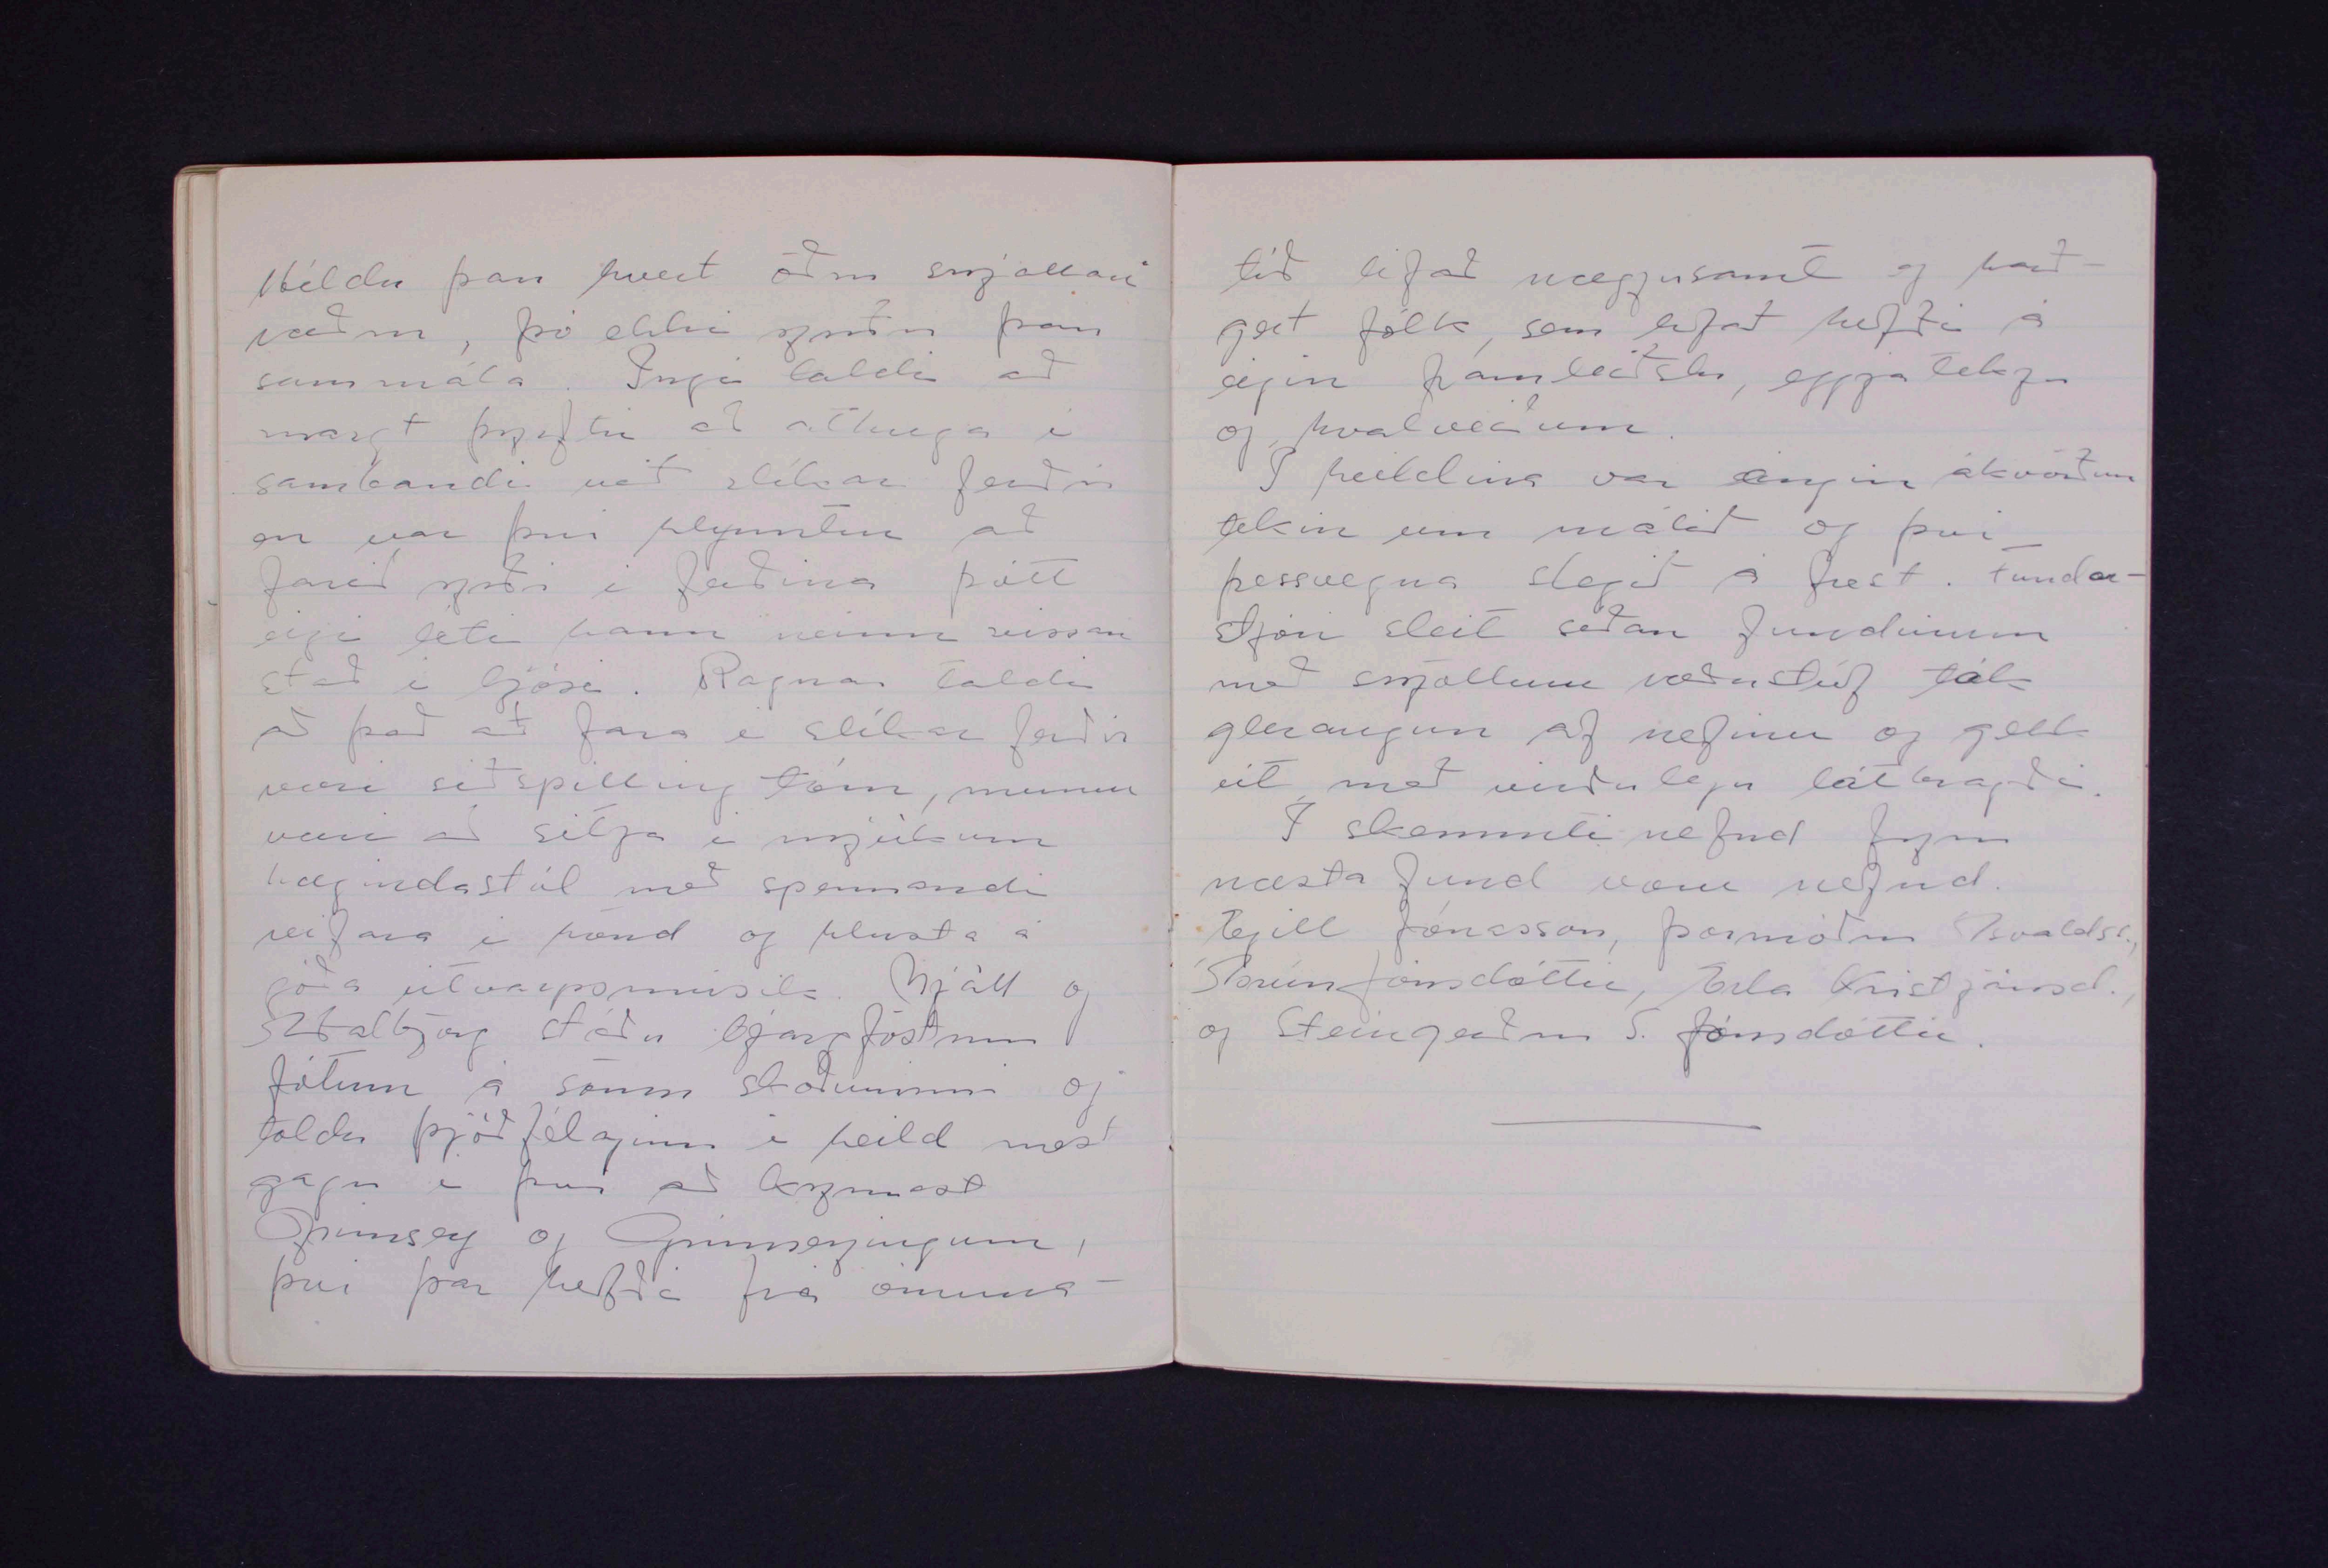 Héldu þau hvert öðru snjallari
ræðu, þó ekki yrðu þau
sammála. Ingi taldi að
margt þyrfti að athuga í
sambandi við slíkar ferðir
en var því hlynntur að
farið yrði í ferðina þótt
eigi léti hann neinn vissan
stað í ljósi. Ragnar taldi
að það að fara í slíkar ferðir
væri siðspilling tóm, munur
væri að sitja í mjúkum
hægindastól með spennandi
reifara í hönd og hlusta á
góða útvarpsmúsik. Njáll og
Valbjörg stóðu bjargföstum
fótum á sömu skoðuninni og
töldu þjóðfélaginu í heild mest
gagn í því að kynnast
Grímsey og Grímseyingum,
því þar hefði frá ómuna-
tíð lifað nægjusamt og harð-
gert fólk, sem lifað hefði á
eigin framleiðslu, eggjatekju
og hvalveiðum.
Í heildina var eingin ákvörðun
tekin um málið og því
þessvegna slegið á frest. Fundar-
stjóri sleit síðan fundinum
með snjöllum ræðustúf tók
gleraugun af nefinu og gekk
út með virðulegu látbragði.
Í skemmtinefnd fyrir
næsta fund voru nefnd.
Egill Jónasson, Þormóður Ásvaldss.,
Þórunn Jónsdóttir, Erla Kristjánsd.,
og Steingerður S. Jónsdóttir.